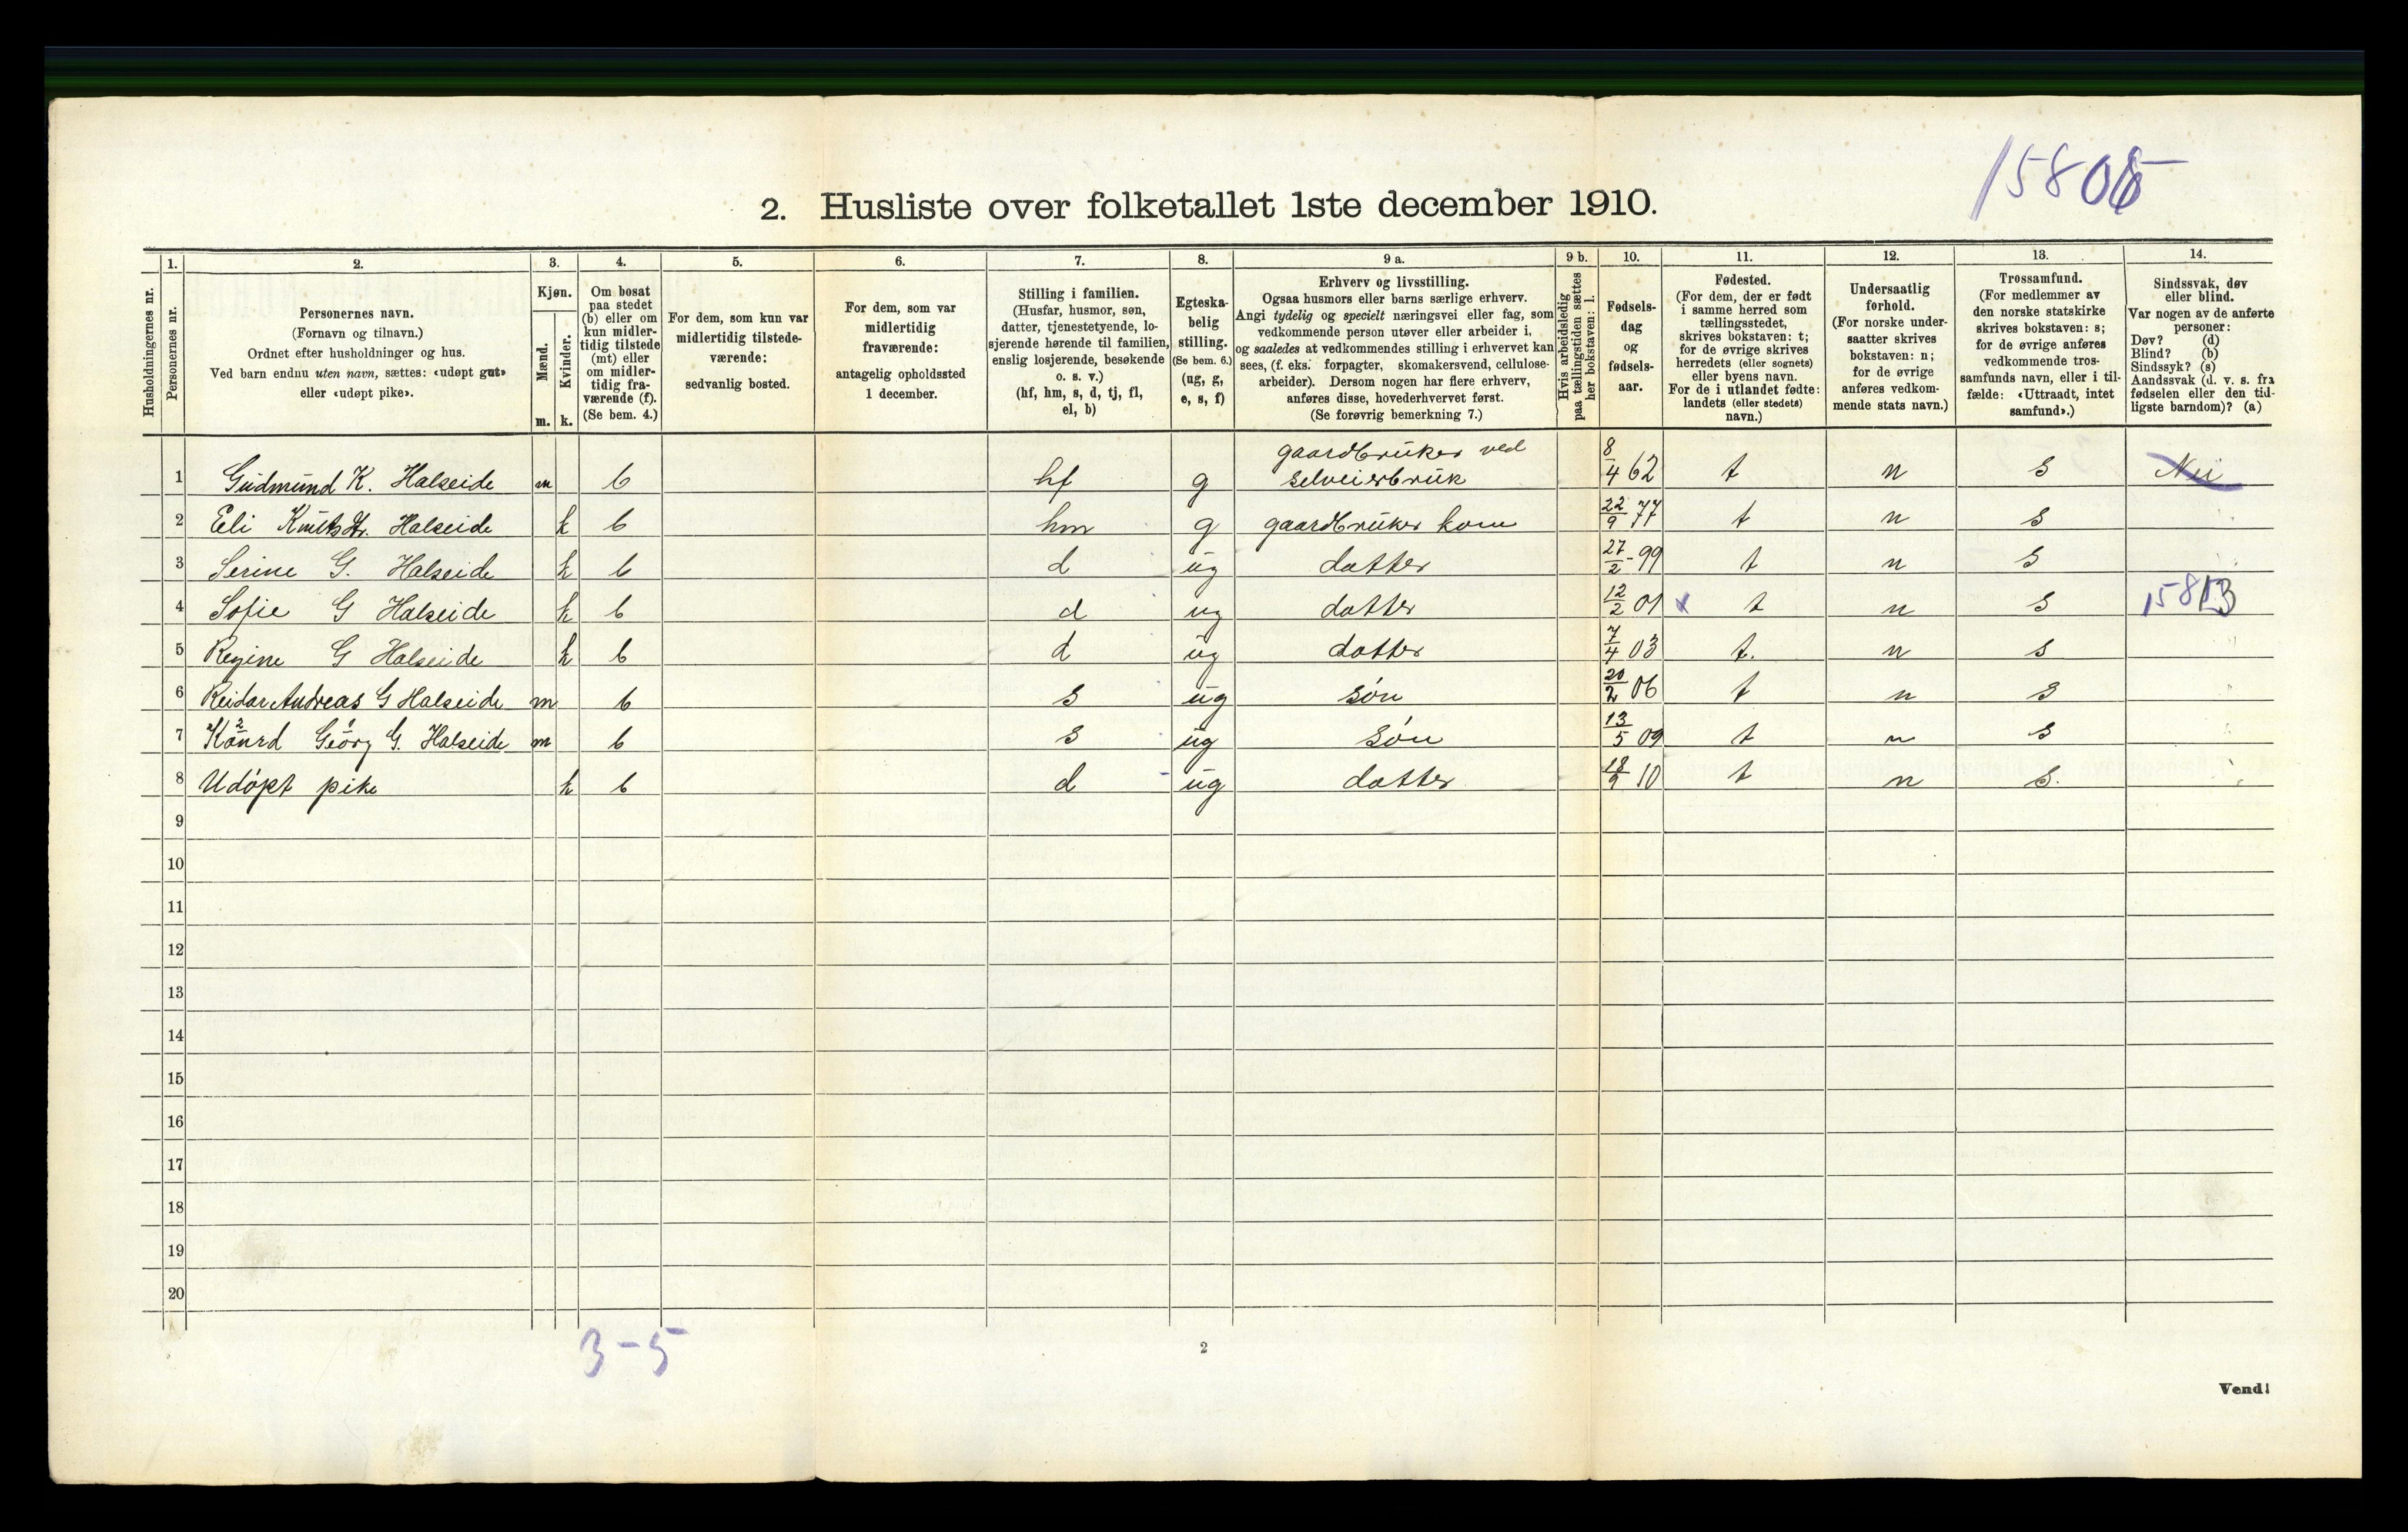 15805
2. Husliste over folketallet 1ste december 1910.
Husholdningernes nr.
1.
Personernes nr.
2.
Personernes navn.
(Fornavn og tilnavn.)
Ordnet efter husholdninger og hus.
Ved barn endnu uten navn, sættes: «udøpt gut»
eller «udøpt pike».
3.
Kjøn.
Mænd.
Kvinder.
m. k.
4.
Om bosat
paa stedet
(b) eller om
kun midler-
tidig tilstede
(mt) eller
om midler-
tidig fra-
værende (f).
(Se bem. 4.)
5.
For dem, som kun var
midlertidig tilstede-
værende:
sedvanlig bosted.
6.
For dem, som var
midlertidig
fraværende:
antagelig opholdssted
1 december.
7.
Stilling i familien.
(Husfar, husmor, søn,
datter, tjenestetyende, lo-
sjerende hørende til familien,
enslig losjerende, besøkende
o. s. v.)
(hf, hm, s, d, tj, fl,
el, b)
8.
Egteska-
belig
stilling.
(Se bem. 6.)
(ug, g,
e, s, f)
9 a.
Erhverv og livsstilling.
Ogsaa husmors eller barns særlige erhverv.
Angi tydelig og specielt næringsvei eller fag, som
vedkommende person utøver eller arbeider i,
og saaledes at vedkommendes stilling i erhvervet kan
sees, (f. eks. forpagter, skomakersvend, cellulose-
arbeider). Dersom nogen har flere erhverv,
anføres disse, hovederhvervet først.
(Se forøvrig bemerkning 7.)
9 b.
Hvis arbeidsledig
paa tællingstiden sættes
her bokstaven: l.
10.
Fødsels-
dag
og
fødsels-
aar.
11.
Fødested.
(For dem, der er født
i samme herred som
tællingsstedet,
skrives bokstaven: t;
for de øvrige skrives
herredets (eller sognets)
eller byens navn.
For de i utlandet fødte:
landets (eller stedets)
navn.)
12.
Undersaatlig
forhold.
(For norske under-
saatter skrives
bokstaven: n;
for de øvrige
anføres vedkom-
mende stats navn.)
13.
Trossamfund.
(For medlemmer av
den norske statskirke
skrives bokstaven: s;
for de øvrige anføres
vedkommende tros-
samfunds navn, eller i til-
fælde: «Uttraadt, intet
samfund».)
14.
Sindssvak, døv
eller blind.
Var nogen av de anførte
personer:
Døv? (d)
Blind? (b)
Sindssyk? (s)
Aandssvak (d. v. s. fra
fødselen eller den tid-
ligste barndom)? (a)
1 Gudmund K. Halseide m b hf g gaardbruker ved selveierbruk 8/4 62 t n s Nei
2 Eli Knutsdtr. Halseide k b hm g gaardbruker kone 22/9 77 t n s
3 Serine G. Halseide k b d ug datter 27/2-99 t n s
4 Sofie G Halseide k b d ug datter 12/2 01 x t n s 15813
5 Regine G Halseide k b d ug datter 7/4 03 t. n s
6 Reidar Andreas G Halseide m b s ug søn 20/2 06 t n s
7 Konrd Georg G. Halseide m b s ug søn 13/5 09 t n s
8 Udøpt pike k b d - ug datter 18/9 10 t n s.
9
10
11
12
13
14
15
16
17
18
19
20
3-5
2
Vend!